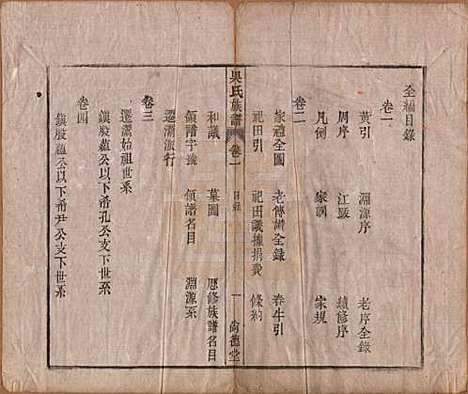 全編目錄
卷一
黃引 淵源序 老序全錄
周序 江䟦 續修序
凡例 家訓 家規
卷二
家禮全圖 老傳譜全錄 春牛引
祀田引 祀田議據捐費 條約
吳氏族譜 卷一 目錄 一 尚德堂
和議 墓圖 歷修族譜名目
領譜字號 領譜名目 淵源系
遷派行
卷三
遷始祖世系
鎮股蘊公以下希孔公支下世系
卷四
鎮股蘊公以下希尹公支下世系